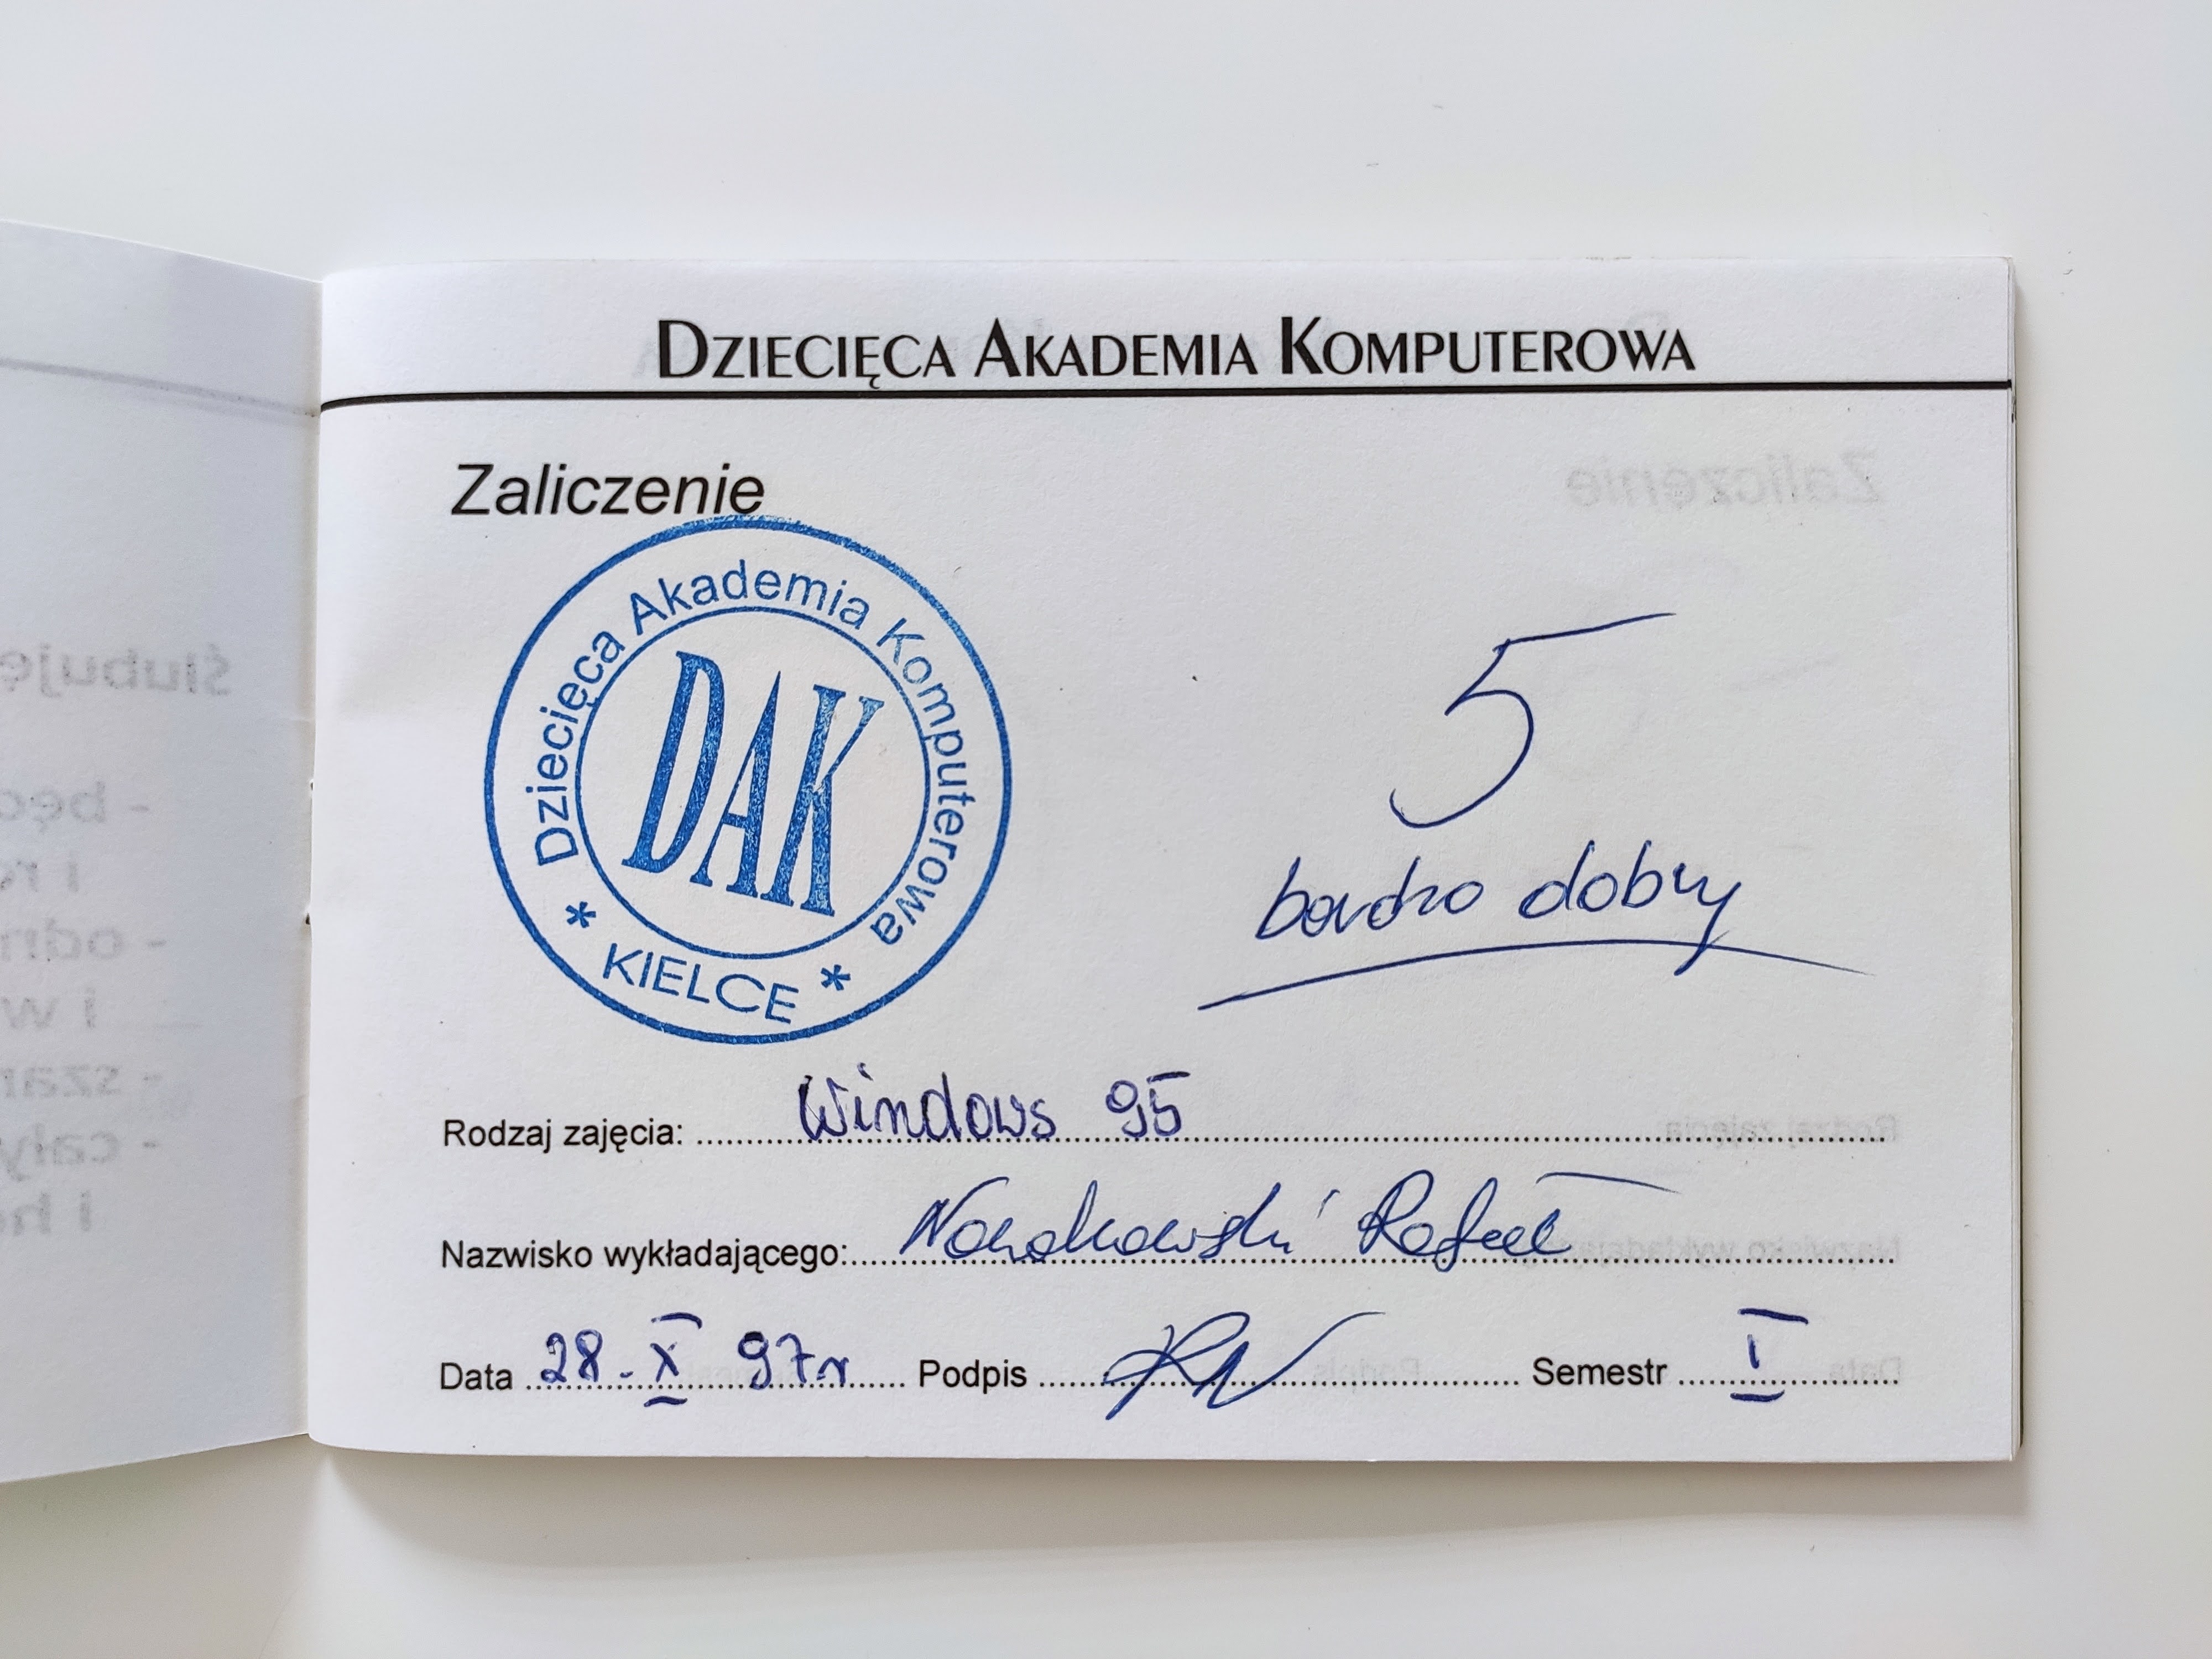 DZIECIĘCA AKADEMIA KOMPUTEROWA
Zaliczenie
Dziecięca Akademia Komputerowa
DAK
* KIELCE *
5
bardzo dobry
Rodzaj zajęcia: Windows 95
Nazwisko wykładającego: Nowakowski Rafał
Data 28-X 97r Podpis RN Semestr I